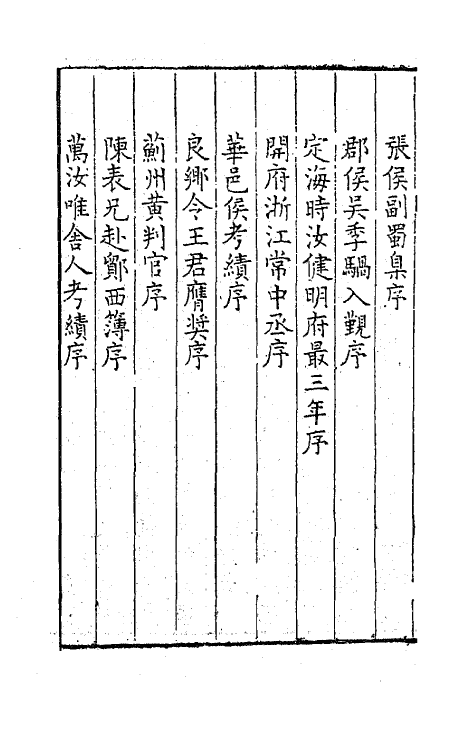 張侯副蜀臬序
郡侯吴季騧入觐序
定海時汝健明府最三年序
開府浙江常中丞序
華邑侯考績序
良鄉令王君膺奨序
薊州黄判官序
陳表兄赴鄖西簿序
萬汝唯舍人考績序